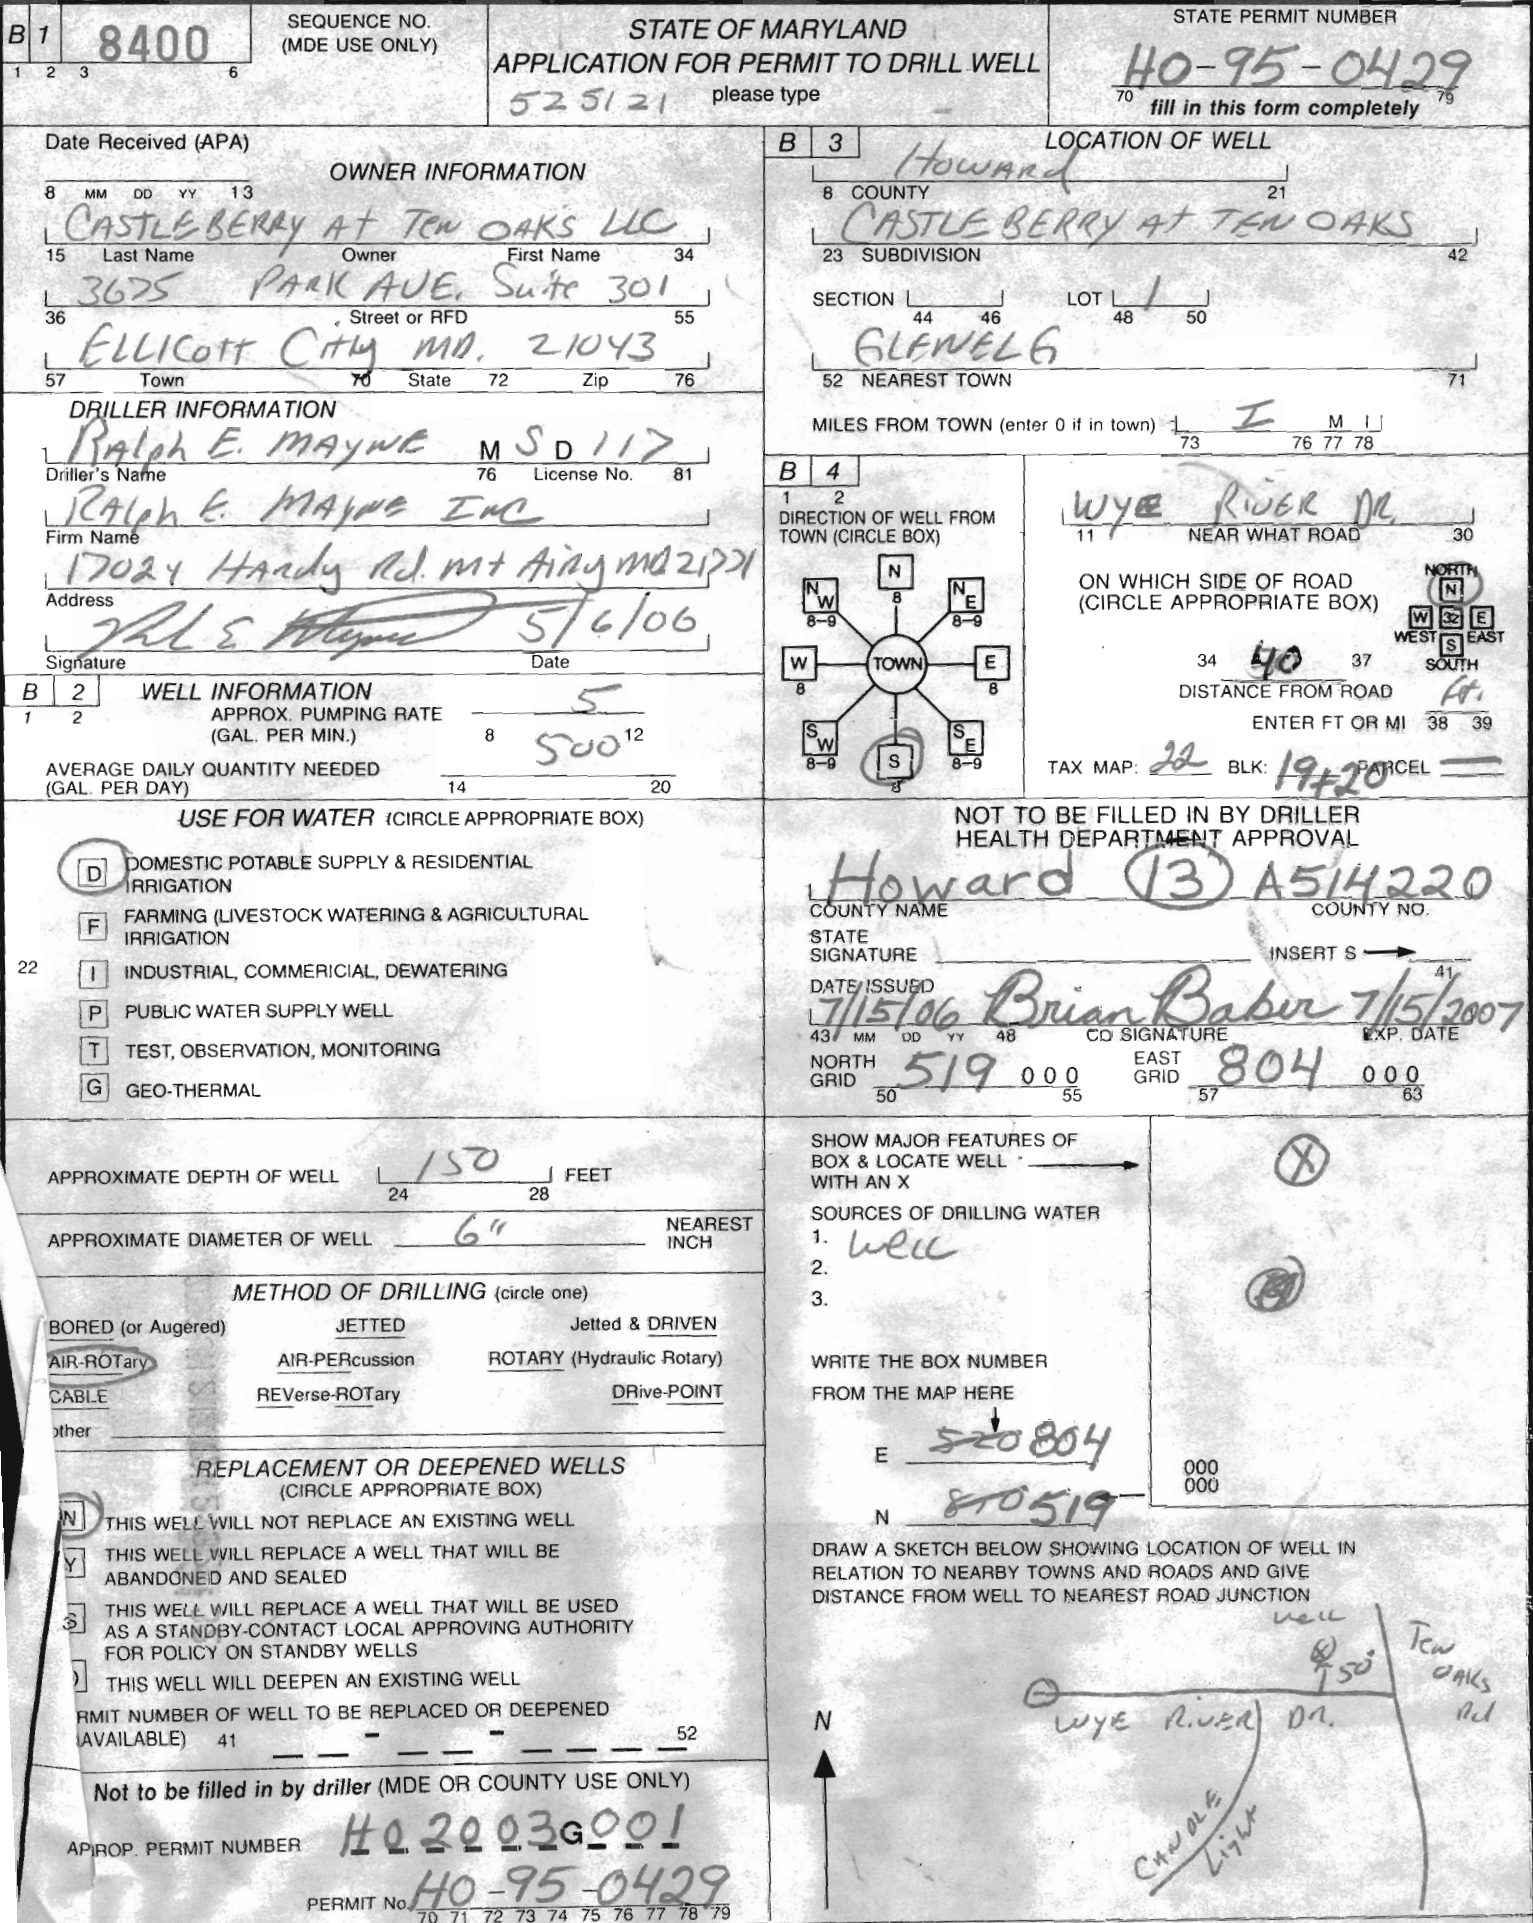 B 1 8400
1 2 3 6
SEQUENCE NO.
(MDE USE ONLY)
STATE OF MARYLAND
APPLICATION FOR PERMIT TO DRILL WELL
please type
525121
STATE PERMIT NUMBER
HO-95-0429
70 79
fill in this form completely
Date Received (APA)
8 MM DD YY 13
OWNER INFORMATION
CASTLEBERRY At Ten OAKS LLC
15 Last Name Owner First Name 34
3675 PARK AVE. Suite 301
36 Street or RFD 55
ELLICott City MD. 21043
57 Town 70 State 72 Zip 76
DRILLER INFORMATION
Ralph E. MAYNE M S D 117
Driller's Name 76 License No. 81
RAlph E. MAYNE INC
Firm Name
17024 Hardy Rd. Mt Airy MD 21771
Address
5/6/06
Signature Date
B 2 WELL INFORMATION
1 2
APPROX. PUMPING RATE 5
(GAL. PER MIN.) 8 12
AVERAGE DAILY QUANTITY NEEDED 500
(GAL. PER DAY) 14 20
USE FOR WATER (CIRCLE APPROPRIATE BOX)
D DOMESTIC POTABLE SUPPLY & RESIDENTIAL
IRRIGATION
F FARMING (LIVESTOCK WATERING & AGRICULTURAL
IRRIGATION
22 I INDUSTRIAL, COMMERICIAL, DEWATERING
P PUBLIC WATER SUPPLY WELL
T TEST, OBSERVATION, MONITORING
G GEO-THERMAL
APPROXIMATE DEPTH OF WELL 150 FEET
24 28
APPROXIMATE DIAMETER OF WELL 6" NEAREST
INCH
METHOD OF DRILLING (circle one)
BORED (or Augered) JETTED Jetted & DRIVEN
AIR-ROTary AIR-PERcussion ROTARY (Hydraulic Rotary)
CABLE REVerse-ROTary DRive-POINT
other
REPLACEMENT OR DEEPENED WELLS
(CIRCLE APPROPRIATE BOX)
N THIS WELL WILL NOT REPLACE AN EXISTING WELL
Y THIS WELL WILL REPLACE A WELL THAT WILL BE
ABANDONED AND SEALED
S THIS WELL WILL REPLACE A WELL THAT WILL BE USED
AS A STANDBY-CONTACT LOCAL APPROVING AUTHORITY
FOR POLICY ON STANDBY WELLS
THIS WELL WILL DEEPEN AN EXISTING WELL
RMIT NUMBER OF WELL TO BE REPLACED OR DEEPENED
AVAILABLE) 41 - - 52
Not to be filled in by driller (MDE OR COUNTY USE ONLY)
APPROP. PERMIT NUMBER HO2003G001
PERMIT No. HO-95-0429
70 71 72 73 74 75 76 77 78 79
B 3 LOCATION OF WELL
Howard
8 COUNTY 21
CASTLEBERRY At TEN OAKS
23 SUBDIVISION 42
SECTION LOT 1
44 46 48 50
GLENELG
52 NEAREST TOWN 71
MILES FROM TOWN (enter 0 if in town) I M I
73 76 77 78
B 4
1 2
DIRECTION OF WELL FROM
TOWN (CIRCLE BOX)
N
8
NW NE
8-9 8-9
W TOWN E
8 8
SW S SE
8-9 8 8-9
WYE RIVER DR.
11 NEAR WHAT ROAD 30
ON WHICH SIDE OF ROAD
(CIRCLE APPROPRIATE BOX)
NORTH
N
W 32 E
WEST S EAST
SOUTH
34 40 37
DISTANCE FROM ROAD ft.
ENTER FT OR MI 38 39
TAX MAP: 22 BLK: 19+20 PARCEL
NOT TO BE FILLED IN BY DRILLER
HEALTH DEPARTMENT APPROVAL
Howard 13 A514220
COUNTY NAME COUNTY NO.
STATE
SIGNATURE INSERT S
41
DATE ISSUED
7/15/06 Brian Baber 7/15/2007
43 MM DD YY 48 CO SIGNATURE EXP. DATE
NORTH GRID 519 000 EAST GRID 804 000
50 55 57 63
SHOW MAJOR FEATURES OF
BOX & LOCATE WELL
WITH AN X
X
SOURCES OF DRILLING WATER
1. well
2.
3.
WRITE THE BOX NUMBER
FROM THE MAP HERE
E 520 804
N 810 519
000
000
DRAW A SKETCH BELOW SHOWING LOCATION OF WELL IN
RELATION TO NEARBY TOWNS AND ROADS AND GIVE
DISTANCE FROM WELL TO NEAREST ROAD JUNCTION
well
50'
Ten
OAKS
Rd
WYE RIVER DR.
N
CANDLE
Light